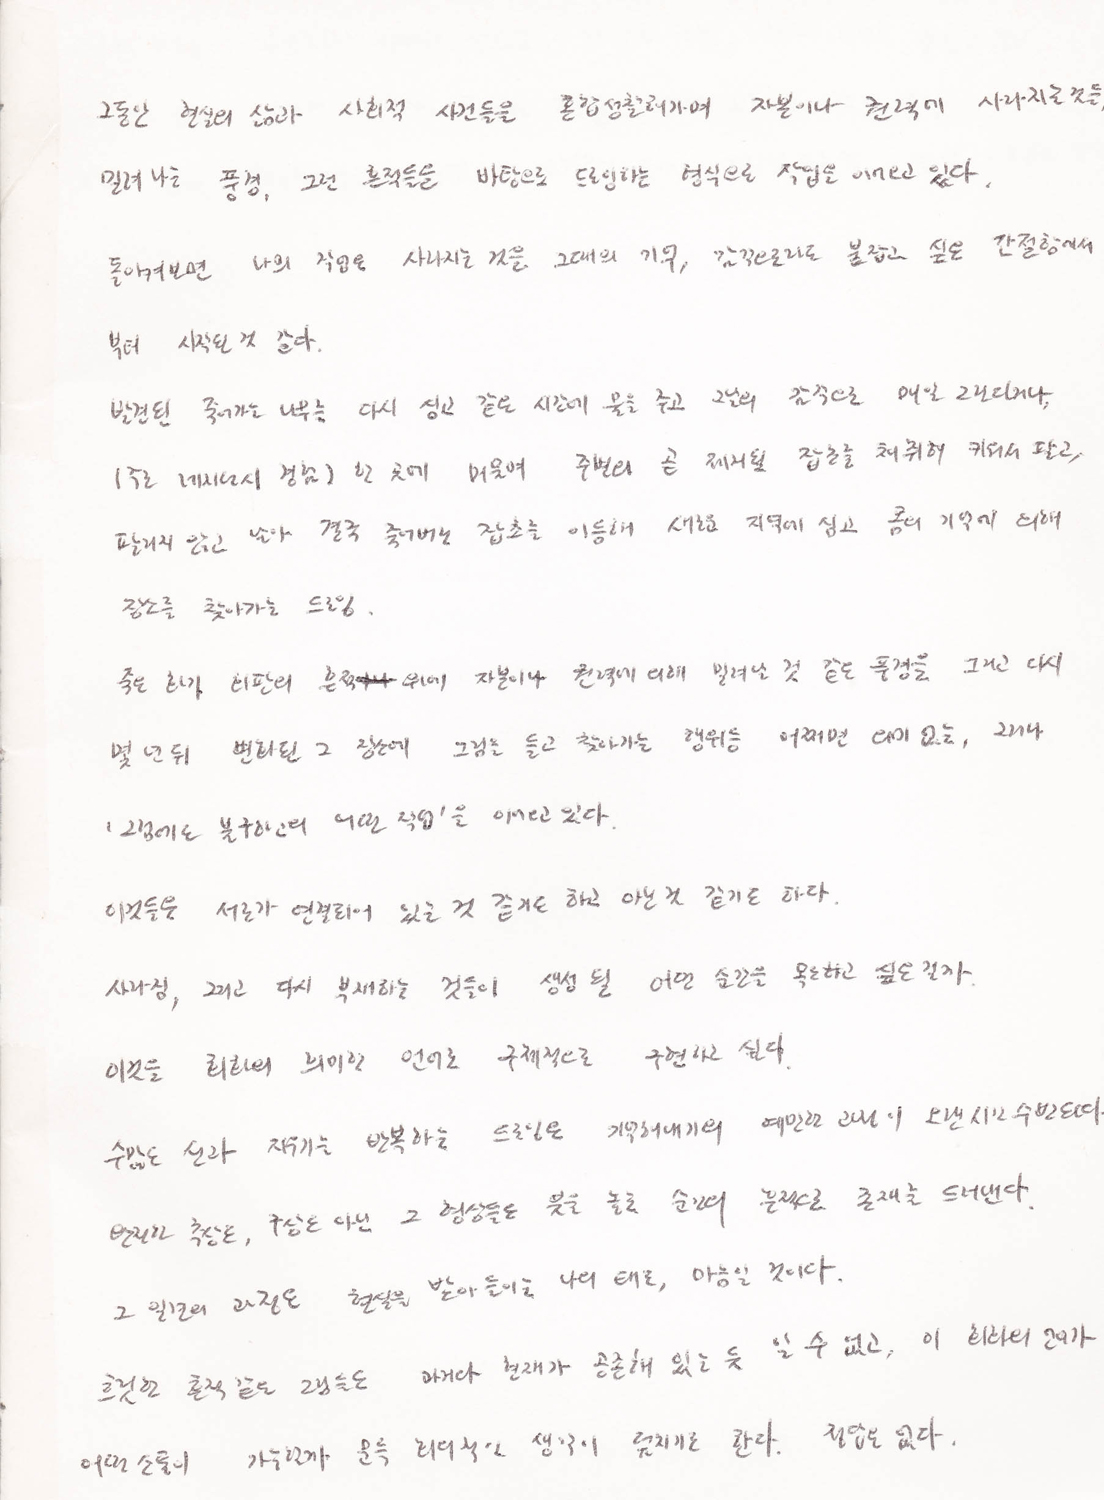 그동안 현실의 삶과 사회적 사건들을 혼합성찰해가며 자본이나 권력에 사라지는 것들,
밀려나는 풍경, 그런 흔적들을 바탕으로 드로잉하는 형식으로 작업을 이어오고 있다.
돌아켜보면 나의 작업은 사라지는 것을 그대의 기무, 감각으로라도 붙잡고 싶은 간절함에서
부터 시작된 것 같다.
발견된 죽어가는 나무를 다시 심고 같은 시간에 물을 주고 그날의 감각으로 매일 그린다거나,
(주로 레지던시 경험) 한 곳에 머물며 주변의 곧 제거될 잡초를 채취해 키워서 팔고,
팔리지 않고 남아 결국 죽어버린 잡초를 이동해 새로운 지역에 심고 몸의 기억에 의해
장소를 찾아가는 드로잉.
죽은 화가 화판의 흔적 위에 자본이나 권력에 의해 밀려난 것 같은 풍경을 그리고 다시
몇 년 뒤 변화된 그 장소에 그림을 들고 찾아가는 행위등 어쩌면 의미 없는, 그러나
'그럼에도 불구하고의 어떤 작업'을 이어오고 있다.
이것들은 서로가 연결되어 있는 것 같기도 하고 아닌 것 같기도 하다.
사라짐, 그리고 다시 부재하는 것들이 생성 될 어떤 순간을 목도하고 싶은 걸까.
이것을 회화의 희미한 언어로 구체적으로 구현하고 싶다.
수많은 선과 지우기를 반복하는 드로잉은 지우해내기의 예민한 고민이 오랜 시간 수반된다.
완전한 추상도, 구상도 아닌 그 형상들은 붓을 놓은 순간의 흔적으로 존재를 드러낸다.
그 일련의 과정은 현실을 받아들이는 나의 태도, 마음일 것이다.
흐릿한 흔적 같은 그림들은 과거와 현재가 공존해 있는 듯 알 수 없고, 이 회화의 언어가
어떤 소통이 가능할까 문득 회의적인 생각이 덮치기도 한다. 정답은 없다.